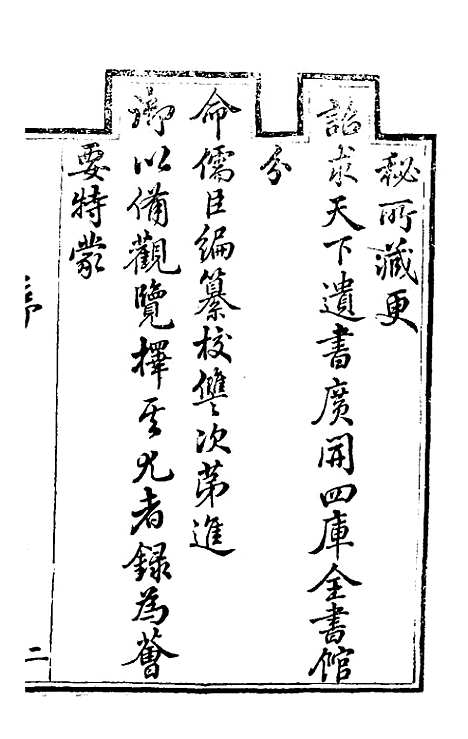 秘所藏更
詔求天下遺書廣開四庫全書館
分
命儒臣編纂校讐次第進
御以備觀覽擇其尤者録為薈
要特蒙
序
二